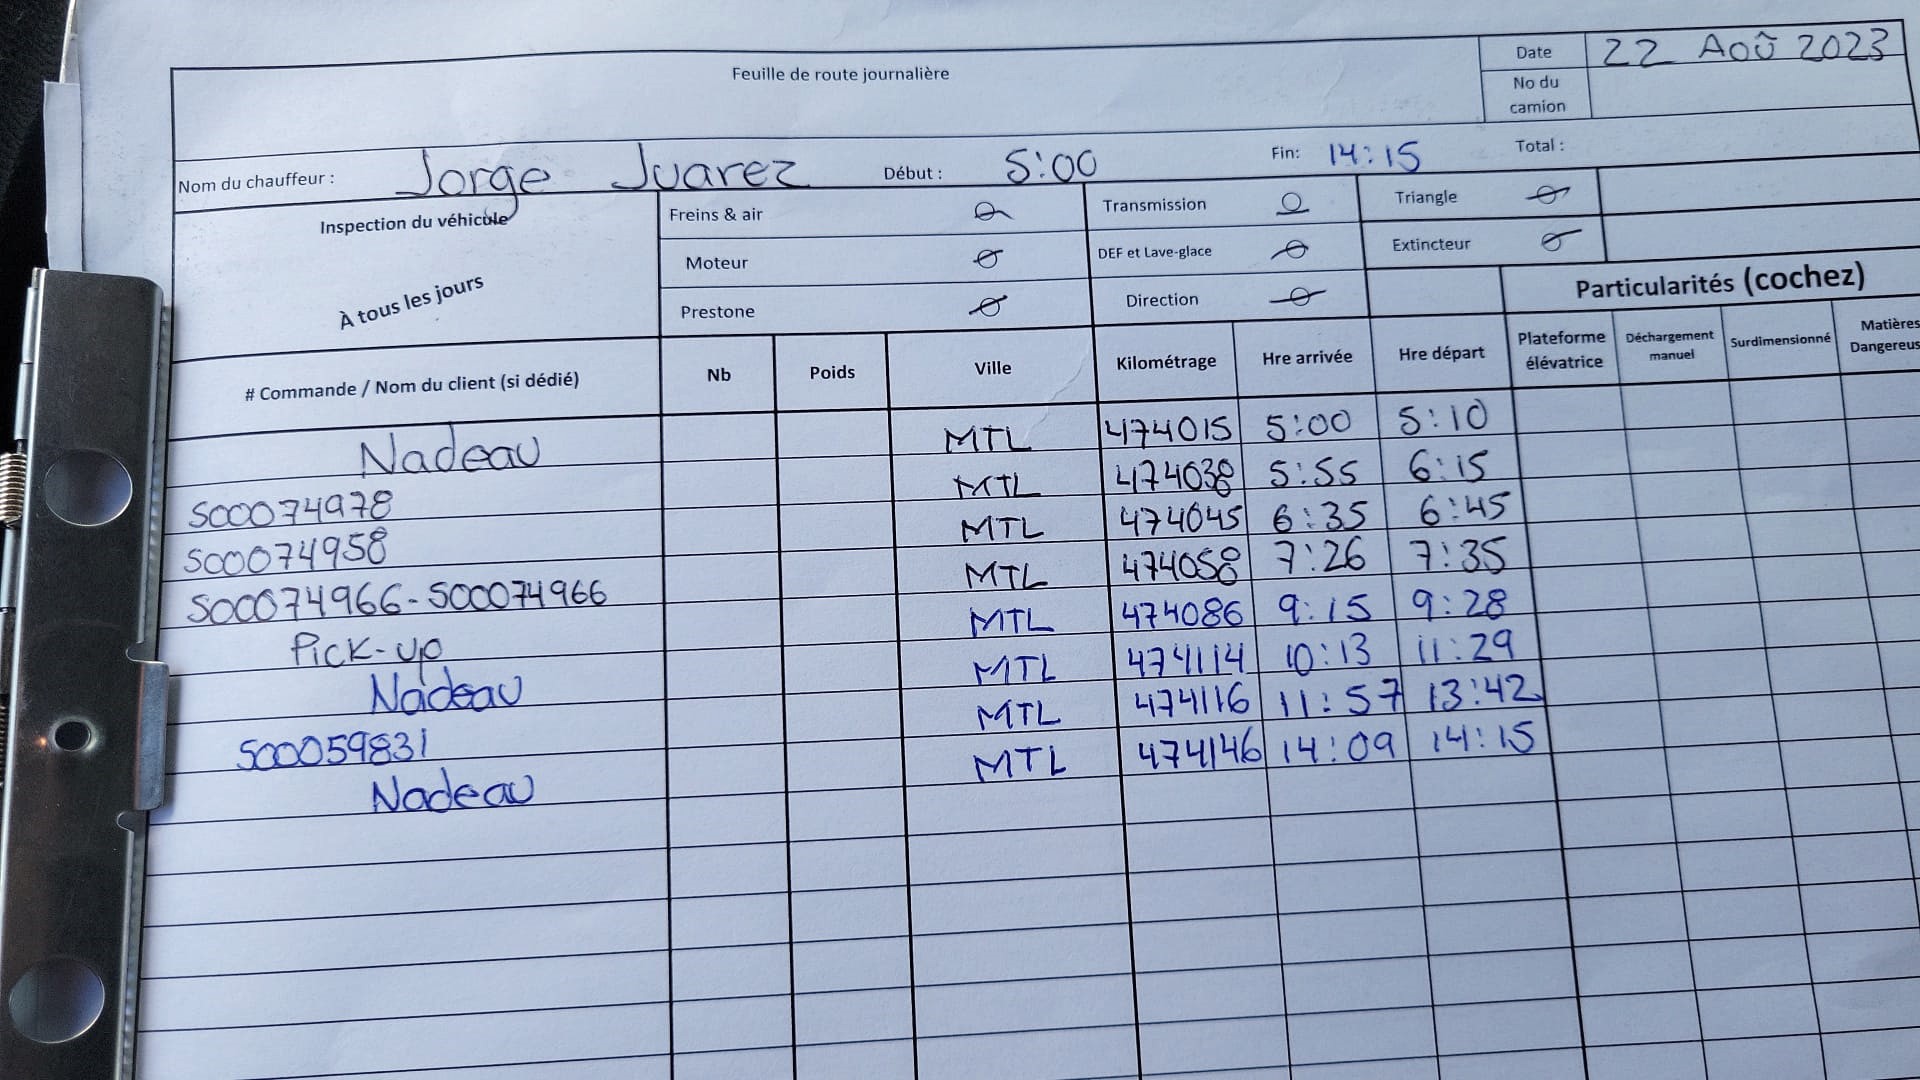 Feuille de route journalière
Date 22 Aoû 2023
No du camion
Nom du chauffeur : Jorge Juarez Début : 5:00 Fin: 14:15 Total :
Inspection du véhicule
À tous les jours
Freins & air Transmission Triangle
Moteur DEF et Lave-glace Extincteur
Prestone Direction
Particularités (cochez)
# Commande / Nom du client (si dédié) Nb Poids Ville Kilométrage Hre arrivée Hre départ Plateforme élévatrice Déchargement manuel Surdimensionné Matières Dangereus
Nadeau MTL 474015 5:00 5:10
S00074978 MTL 474038 5:55 6:15
S00074958 MTL 474045 6:35 6:45
S00074966-S00074966 MTL 474058 7:26 7:35
Pick-up MTL 474086 9:15 9:28
Nadeau MTL 474114 10:13 11:29
S00059831 MTL 474116 11:57 13:42
Nadeau MTL 474146 14:09 14:15